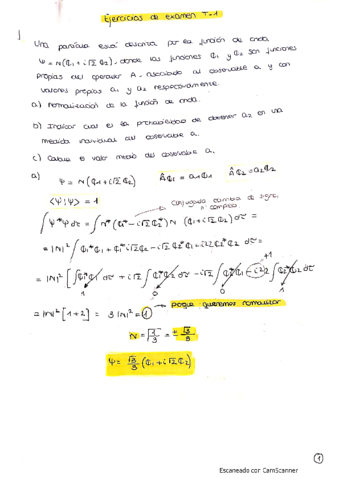 Ejercicios de examen T-1
1
Una partícula está descrita por la función de onda
Ψ = N(φ₁ + i√2 φ₂), donde las funciones φ₁ y φ₂ son funciones
propias del operador A asociado al observable a y con
valores propios a₁ y a₂ respectivamente.
a) Normalización de la función de onda.
b) Indicar cual es la probabilidad de obtener a₂ en una
medida individual del observable a.
c) Calcula el valor medio del observable a.
a) Ψ = N(φ₁ + i√2 φ₂) Âφ₁ = a₁φ₁ Âφ₂ = a₂φ₂
⟨Ψ|Ψ⟩ = 1
conjugado cambia de signo
nº complejo
∫Ψ*Ψdτ = ∫N*(φ₁* - i√2 φ₂*) N (φ₁ + i√2 φ₂) dτ =
= |N|² ∫ φ₁*φ₁ + φ₁* i√2 φ₂ - i√2 φ₂* φ₁ + φ₂* φ₂ dτ =
+1
= |N|² [∫φ₁*φ₁ dτ + i√2 ∫φ₁*φ₂ dτ - i√2 ∫φ₂*φ₁ - i²2 ∫φ₂*φ₂ dτ
1 0 0 1
= |N|² [1+2] = 3|N|² = 1 porque queremos normalizar
N = √1/3 = ± √3/3
Ψ = √3/3 (φ₁ + i√2 φ₂)
1
Escaneado con CamScanner